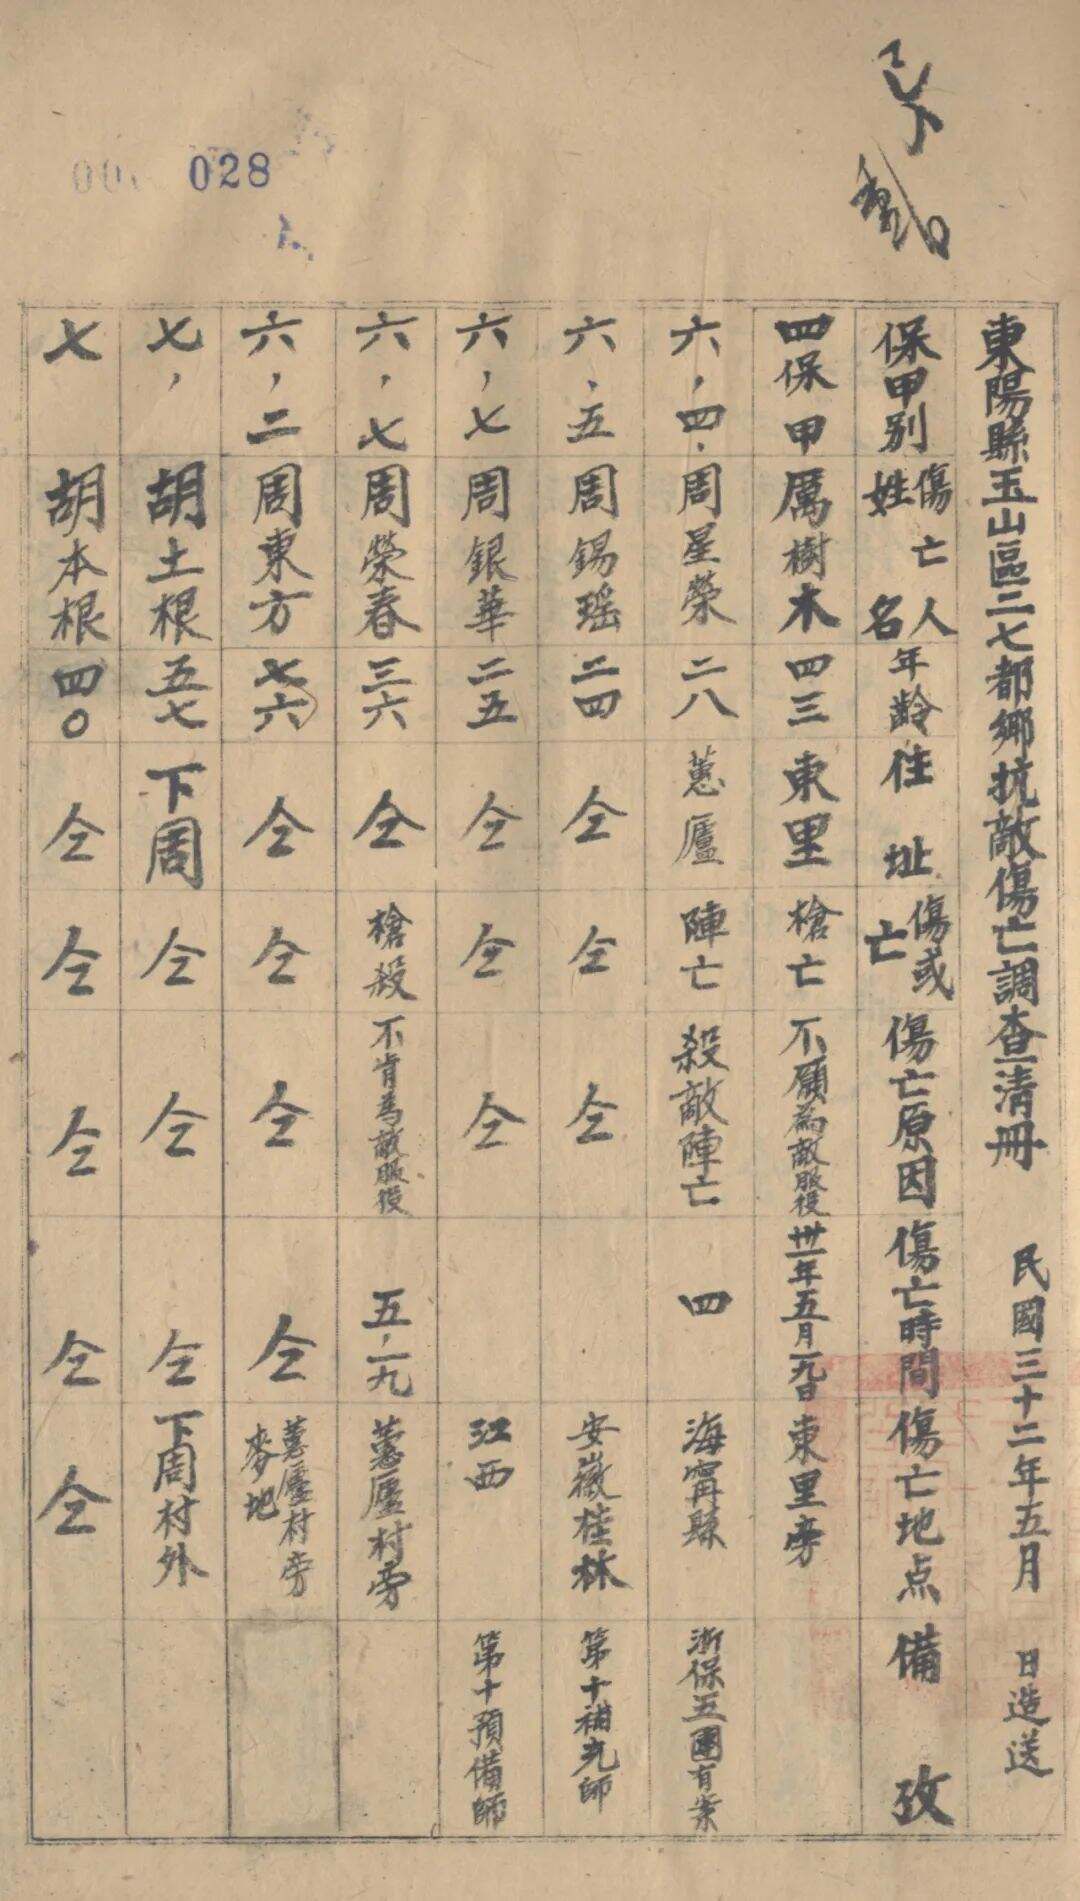 028
東陽縣玉山區二七都鄉抗敵傷亡調查清冊 民國三十二年五月 日造送
保甲別 傷亡人姓名 年齡 住址 傷或亡 傷亡原因 傷亡時間 傷亡地点 備攷
四保 甲 厲樹木 四三 東里 槍亡 不願為敵服役 卅一年五月一九日 東里旁
六，四． 周星榮 二八 蔥廬 陣亡 殺敵陣亡 四 海甯縣 浙保五團有案
六、五 周錫瑶 二四 仝 仝 仝 安徽桂林 第十補充師
六，七 周銀華 二五 仝 仝 仝 江西 第十預備師
六，七 周榮春 三六 仝 槍殺 不肯為敵服役 五，一九 蔥廬村旁
六，二 周東方 七六 仝 仝 仝 仝 蔥廬村旁麥地
七， 胡土根 五七 下周 仝 仝 仝 下周村外
七 胡本根 四〇 仝 仝 仝 仝 仝